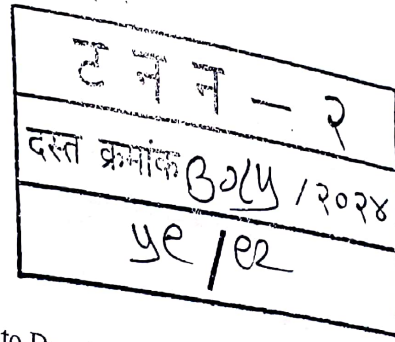 ट न न - २
दस्त क्रमांक /२०२४
५९/९२
to D